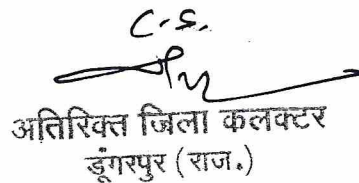 C.S.
अतिरिक्त जिला कलक्टर
डूंगरपुर (राज.)